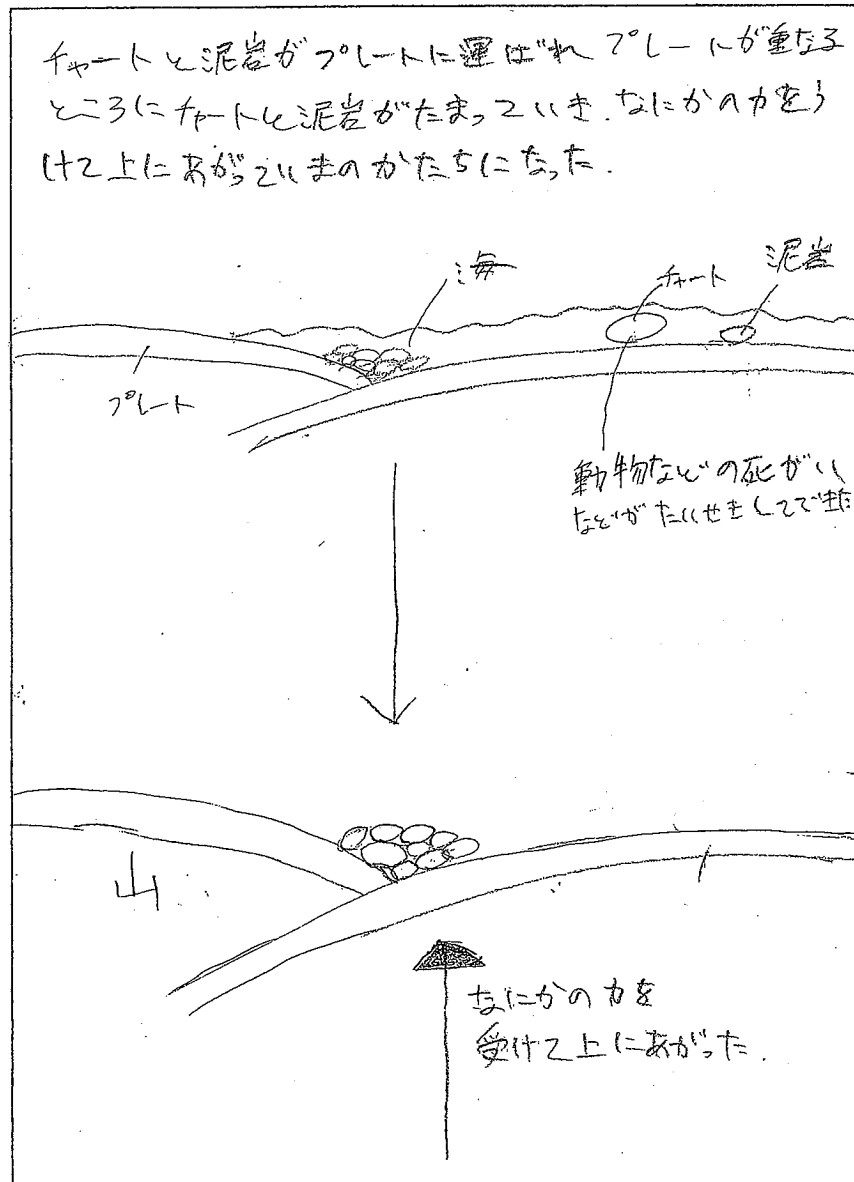 チャートと泥岩がプレートに運ばれプレートが重なる
ところにチャートと泥岩がたまっていき、なにかの力をう
けて上にあがっていまのかたちになった.
海
チャート
泥岩
プレート
動物などの死がい
などがたいせきしてできた
山
なにかの力を
受けて上にあがった.